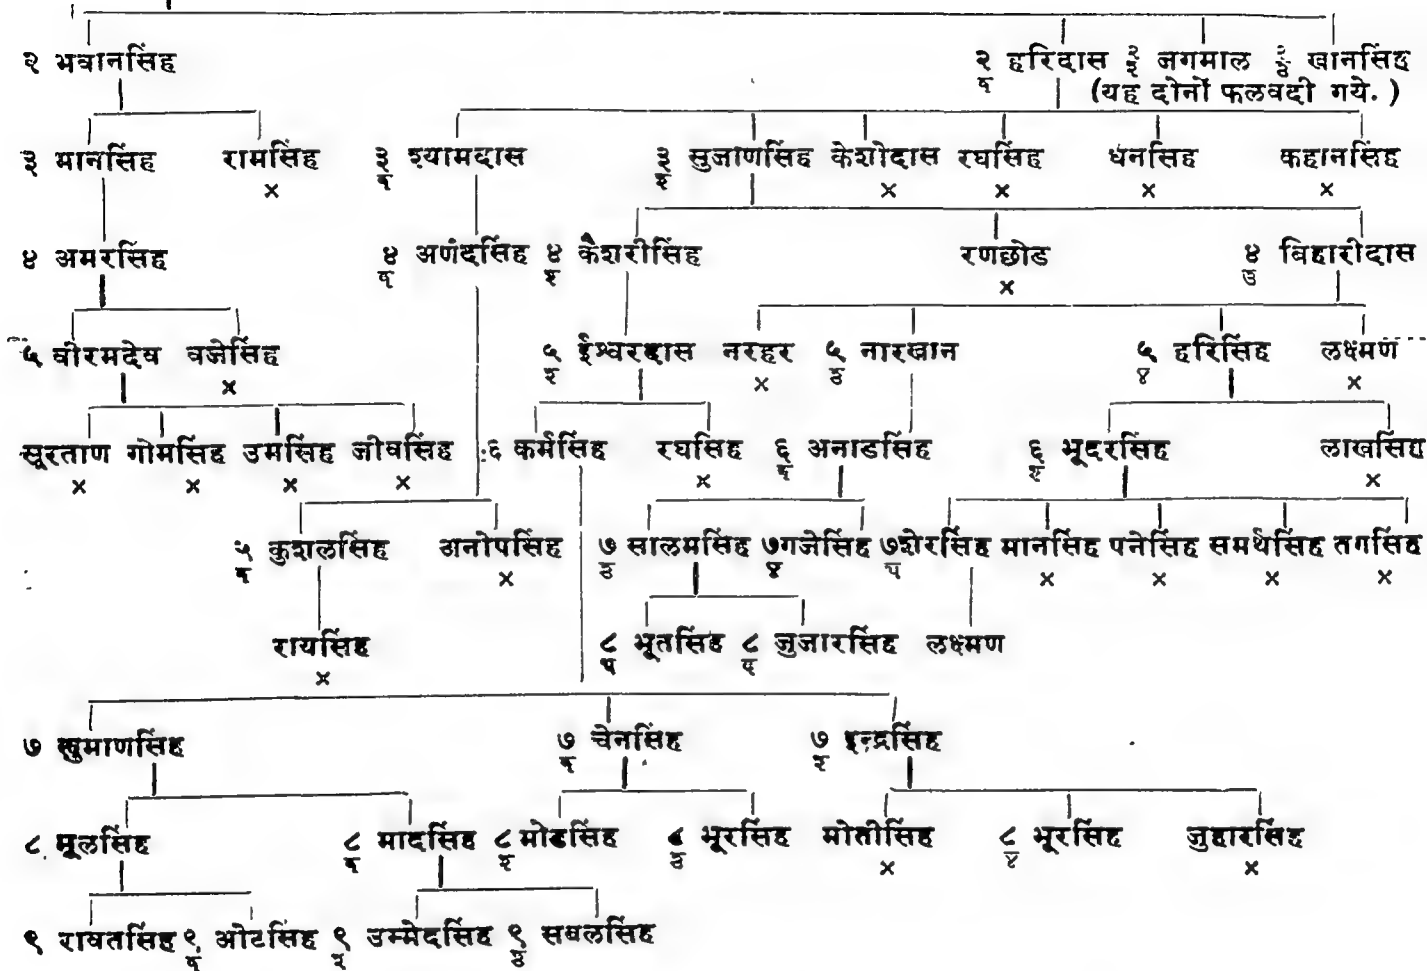 २ भवानसिंह २/१ हरिदास २/२ जगमाल २/३ खानसिंह
(यह दोनों फलवदी गये.)
३ मानसिंह रामसिंह ३/१ श्यामदास ३/२ सुजाणसिंह केशोदास रघसिंह धनसिंह कहानसिंह
× × × × ×
४ अमरसिंह ४/१ अणंदसिंह ४/२ कैशरीसिंह रणछोड ४/३ बिहारीदास
×
५ वीरमदेव वजेसिंह ५/२ ईश्वरदास नरहर ५/३ नारखान ५/४ हरिसिंह लक्ष्मण
× × ×
सूरताण गोमसिंह उमसिंह जीवसिंह ६ कर्मसिंह रघसिंह ६/१ अनाडसिंह ६/२ भूदरसिंह लाखसिंह
× × × × × ×
५/१ कुशलसिंह अनोपसिंह ७/३ सालमसिंह ७/४ गजेसिंह ७/५ शेरसिंह मानसिंह पनेसिंह समर्थसिंह तगसिंह
× × × × ×
रायसिंह ८/५ भूतसिंह ८/६ जुजारसिंह लक्ष्मण
×
७ खुमाणसिंह ७/१ चेनसिंह ७/२ इन्द्रसिंह
८ मूलसिंह ८/१ मादसिंह ८/२ मोडसिंह ८/३ भूरसिंह मोतीसिंह ८/४ भूरसिंह जुहारसिंह
× ×
९ रावतसिंह ९/१ ओटसिंह ९/२ उम्मेदसिंह ९/३ सबलसिंह